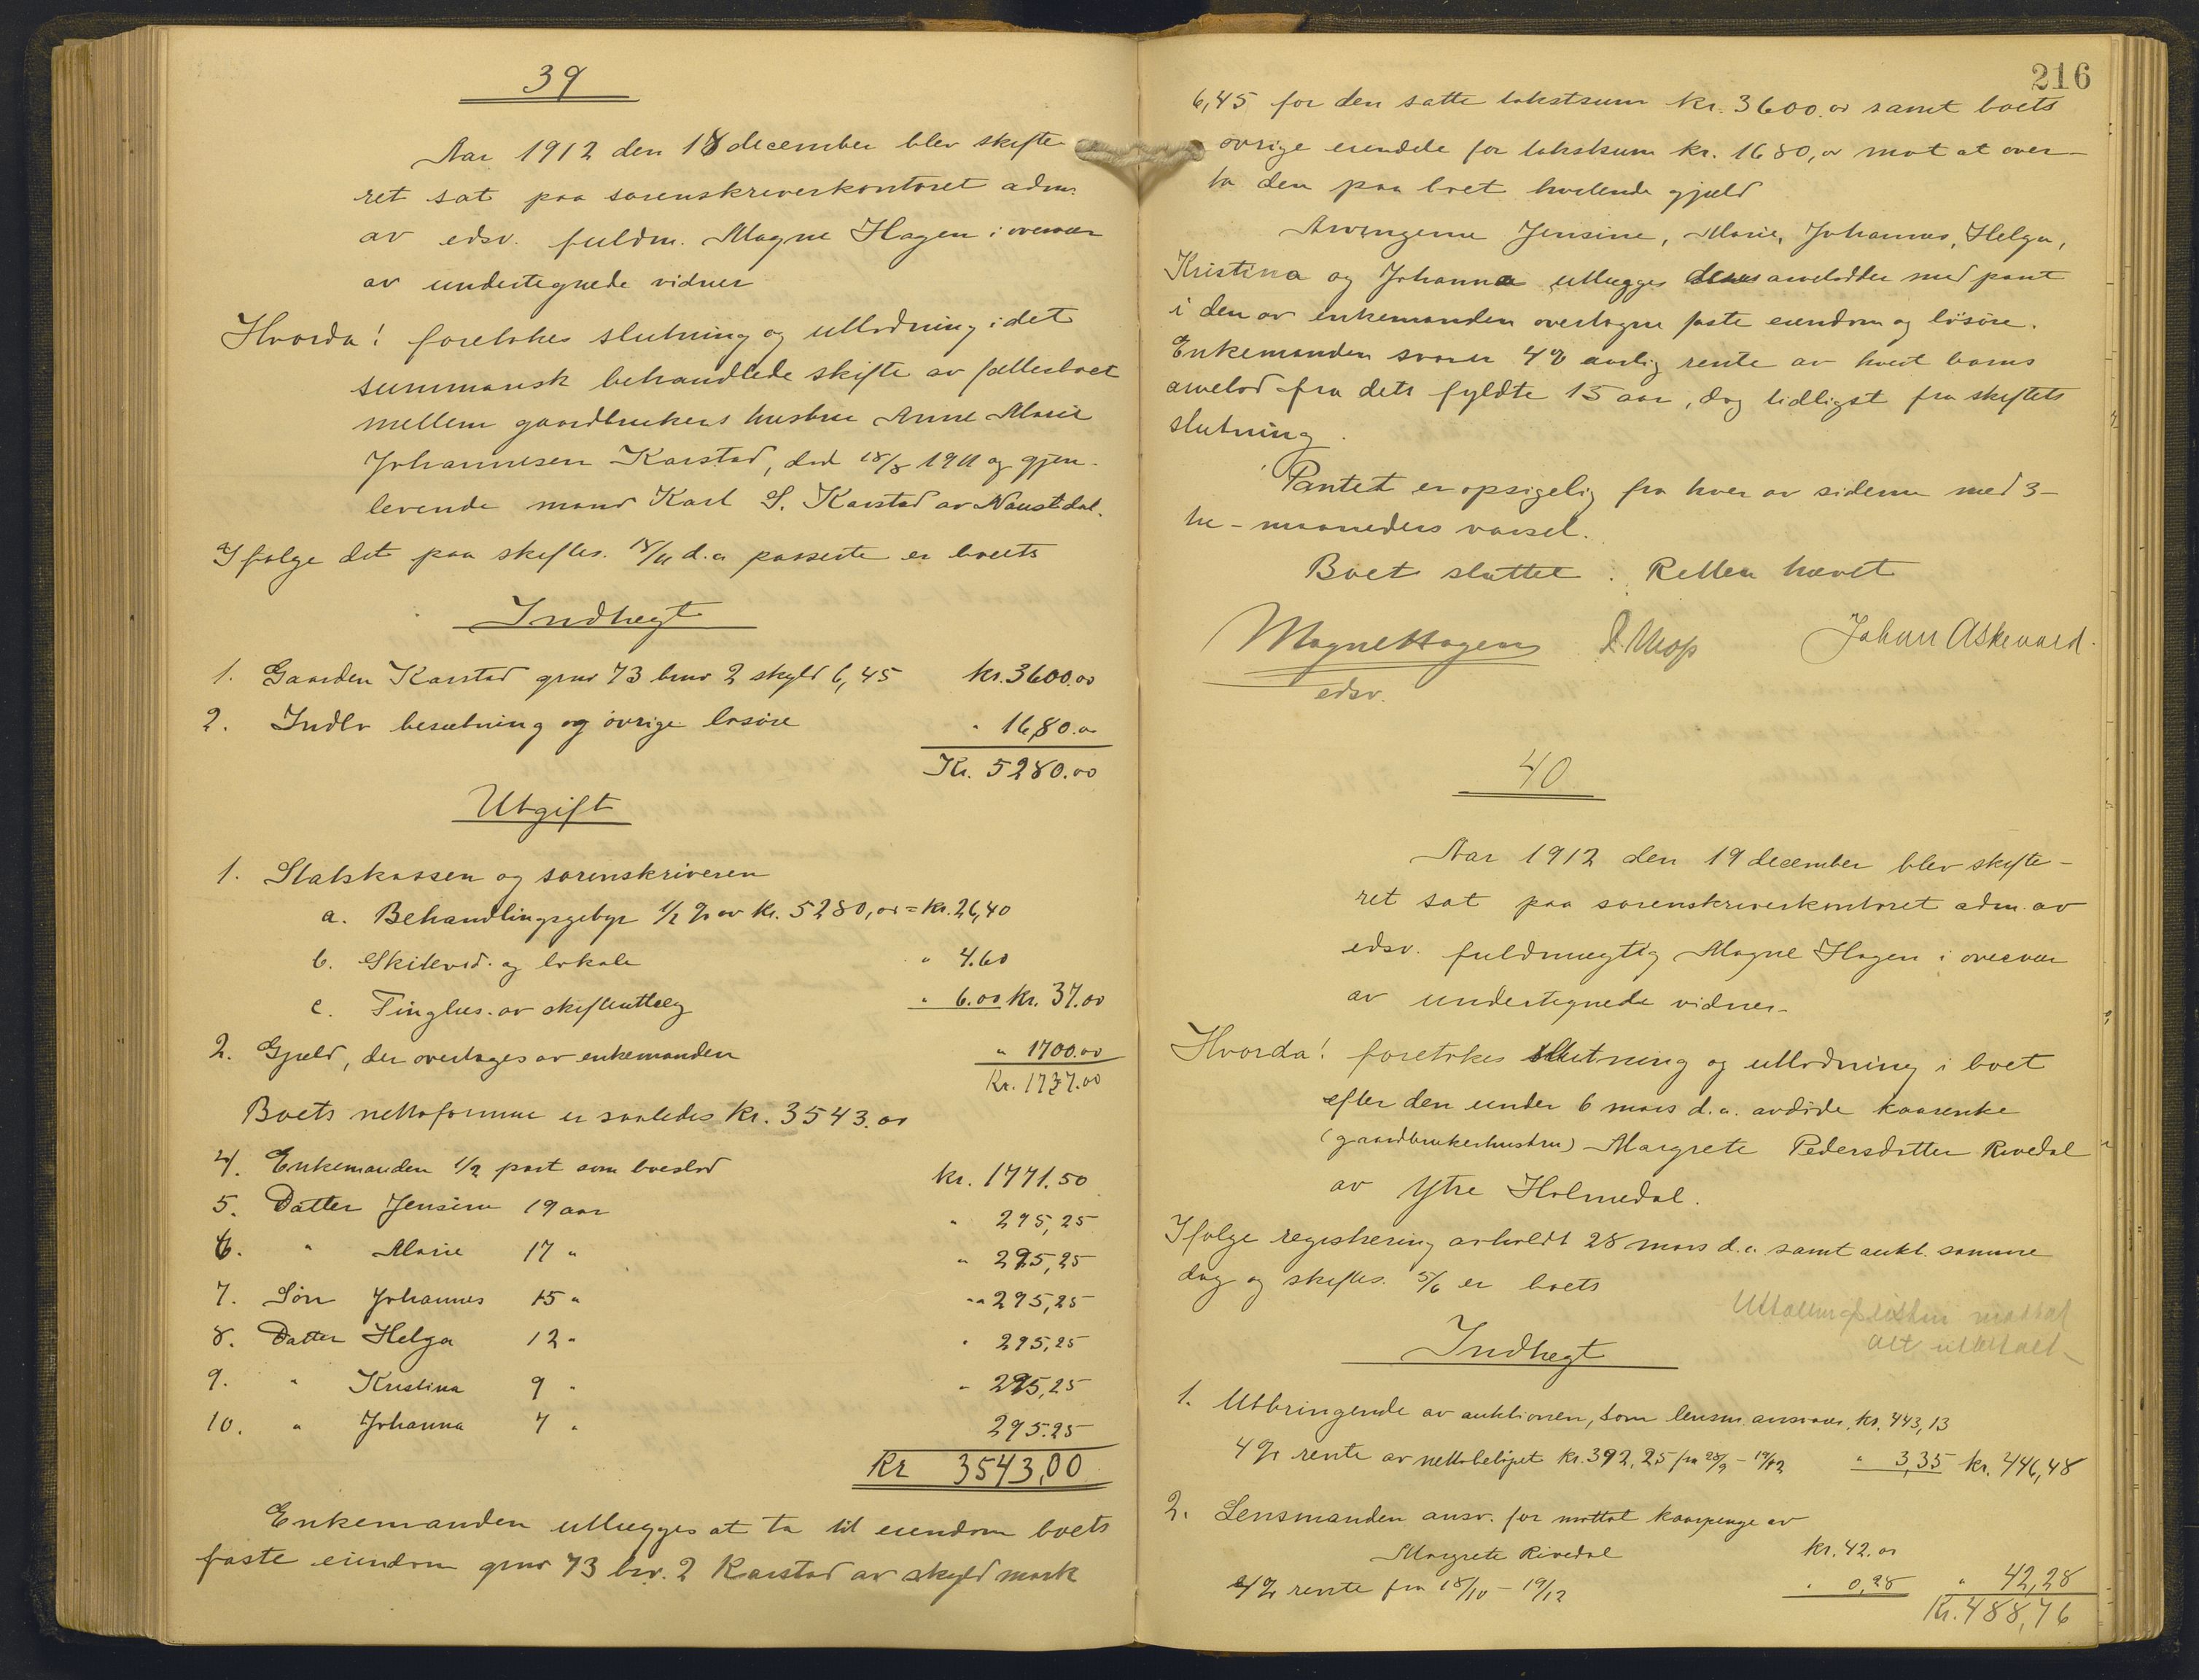 39
Aar 1912 den 18 december blev skifte
ret sat paa sorenskriverkontoret adm.
av edsv. fuldm. Magne Hagen i overvær
av undertegnede vidner
Hvorda! foretokes slutning og utlodning i det
summarisk behandlede skifte av fællesboet
mellem gaardbrukers hustru Anne Marie
Johannesen Karstad, død 18/8 1911 og gjen-
levende mand Karl S. Karstad av Naustdal.
Ifølge det paa skiftes. 18/11 d.a passerte er boets
Indtægt
1. Gaarden Karstad gnr 73 bnr 2 skyld 6,45 kr. 3600.00
2. Indbo besætning og øvrige løsøre " 1680.00
Kr. 5280.00
Utgift
1. Statskassen og sorenskriveren
a. Behandlingsgebyr 1/2 % av kr. 5280,00 = kr. 26,40
b. Skiftevid. og lokale " 4.60
c. Tinglæs. av skifteutlæg " 6.00 kr. 37.00
2. Gjæld, der overtages av enkemanden " 1700.00
Kr. 1737.00
Boets nettoformue er saaledes kr. 3543.00
4. Enkemanden 1/2 part som boeslod kr. 1771.50
5. Datter Jensine 19 aar " 295,25
6. " Marie 17 " " 295,25
7. Søn Johannes 15 " " 295,25
8. Datter Helga 12 " " 295,25
9. " Kristina 9 " " 295,25
10. " Johanna 7 " 295.25
Kr 3543,00
Enkemanden utlægges at ta til eiendom boets
faste eiendom gnr 73 bnr. 2 Karstad av skyld mark
216
6,45 for den satte takstsum kr. 3600.00 samt boets
øvrige eiendele for takstsum kr. 1680,00 mot at over-
ta den paa boet hvilende gjæld
Arvingerne Jensine, Marie, Johannes, Helga,
Kristina og Johanna utlægges deres arvelodder med pant
i den av enkemanden overtagne faste eiendom og løsøre.
Enkemanden svarer 4% aarlig rente av hvert barns
arvelod fra dets fyldte 15 aar, dog tidligst fra skiftets
slutning.
Pantet er opsigelig fra hver av siderne med 3-
tre - maaneders varsel.
Boet sluttet. Retten hævet
Magne Hagen Johan Askevard.
edsv.
40
Aar 1912 den 19 december blev skifte-
ret sat paa sorenskriverkontoret adm. av
edsv. fuldmægtig Magne Hagen i overvær
av undertegnede vidner-
Hvorda! foretokes slutning og utlodning i boet
efter den under 6 mars d.a. avdøde kaarenke
(gaardbrukerhustru) Margrete Pedersdatter Rivedal
av Ytre Holmedal.
Ifølge registrering avholdt 28 mars d.a. samt aukt. samme
dag og skiftes. 5/6 er boets
alt utbetalt
Indtægt
1. Utbringende av auktionen, som lensm. ansvarer kr. 443,13
4% rente av nettobeløpet kr. 392,25 fra 28/9 - 19/12 " 3,35 kr. 446,48
2. Lensmanden ansv. for mottat kaarpenge av
Margrete Rivedal kr. 42.00
4% rente fra 18/10 - 19/12 " 0,28 " 42,28
Kr. 488,76